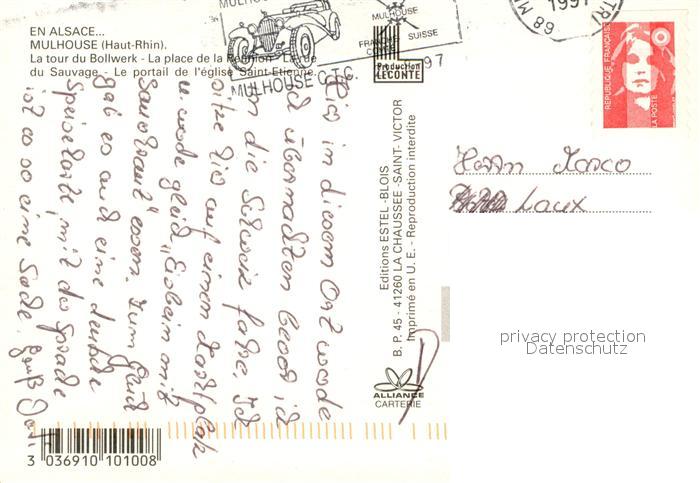 EN ALSACE...
MULHOUSE (Haut-Rhin).
La tour du Bollwerk - La place de la Réunion - La rue
du Sauvage - Le portail de l'église Saint-Etienne.
MULHOUSE
FRANCE SUISSE
MULHOUSE CTC
97
1997
68 M
TRI
Production
LECONTE
RÉPUBLIQUE FRANÇAISE
LA POSTE
Hier in diesem Ort werde
ich übernachten bevor ich
in die Schweiz fahre. Ich
sitze hier auf einem Marktplatz
u. werde gleich "Eisbein mit
Sauerkraut" essen. Zum Glück
gab es auch eine deutsche
Speisekarte, mit der Sprache
ist es so eine Sache. Gruß
Editions ESTEL-BLOIS
B. P. 45 - 41260 LA CHAUSSEE-SAINT-VICTOR
Imprimé en U. E. - Reproduction interdite
Herrn Marco
Laux
privacy protection
Datenschutz
ALLIANCE
CARTERIE
3 036910 101008